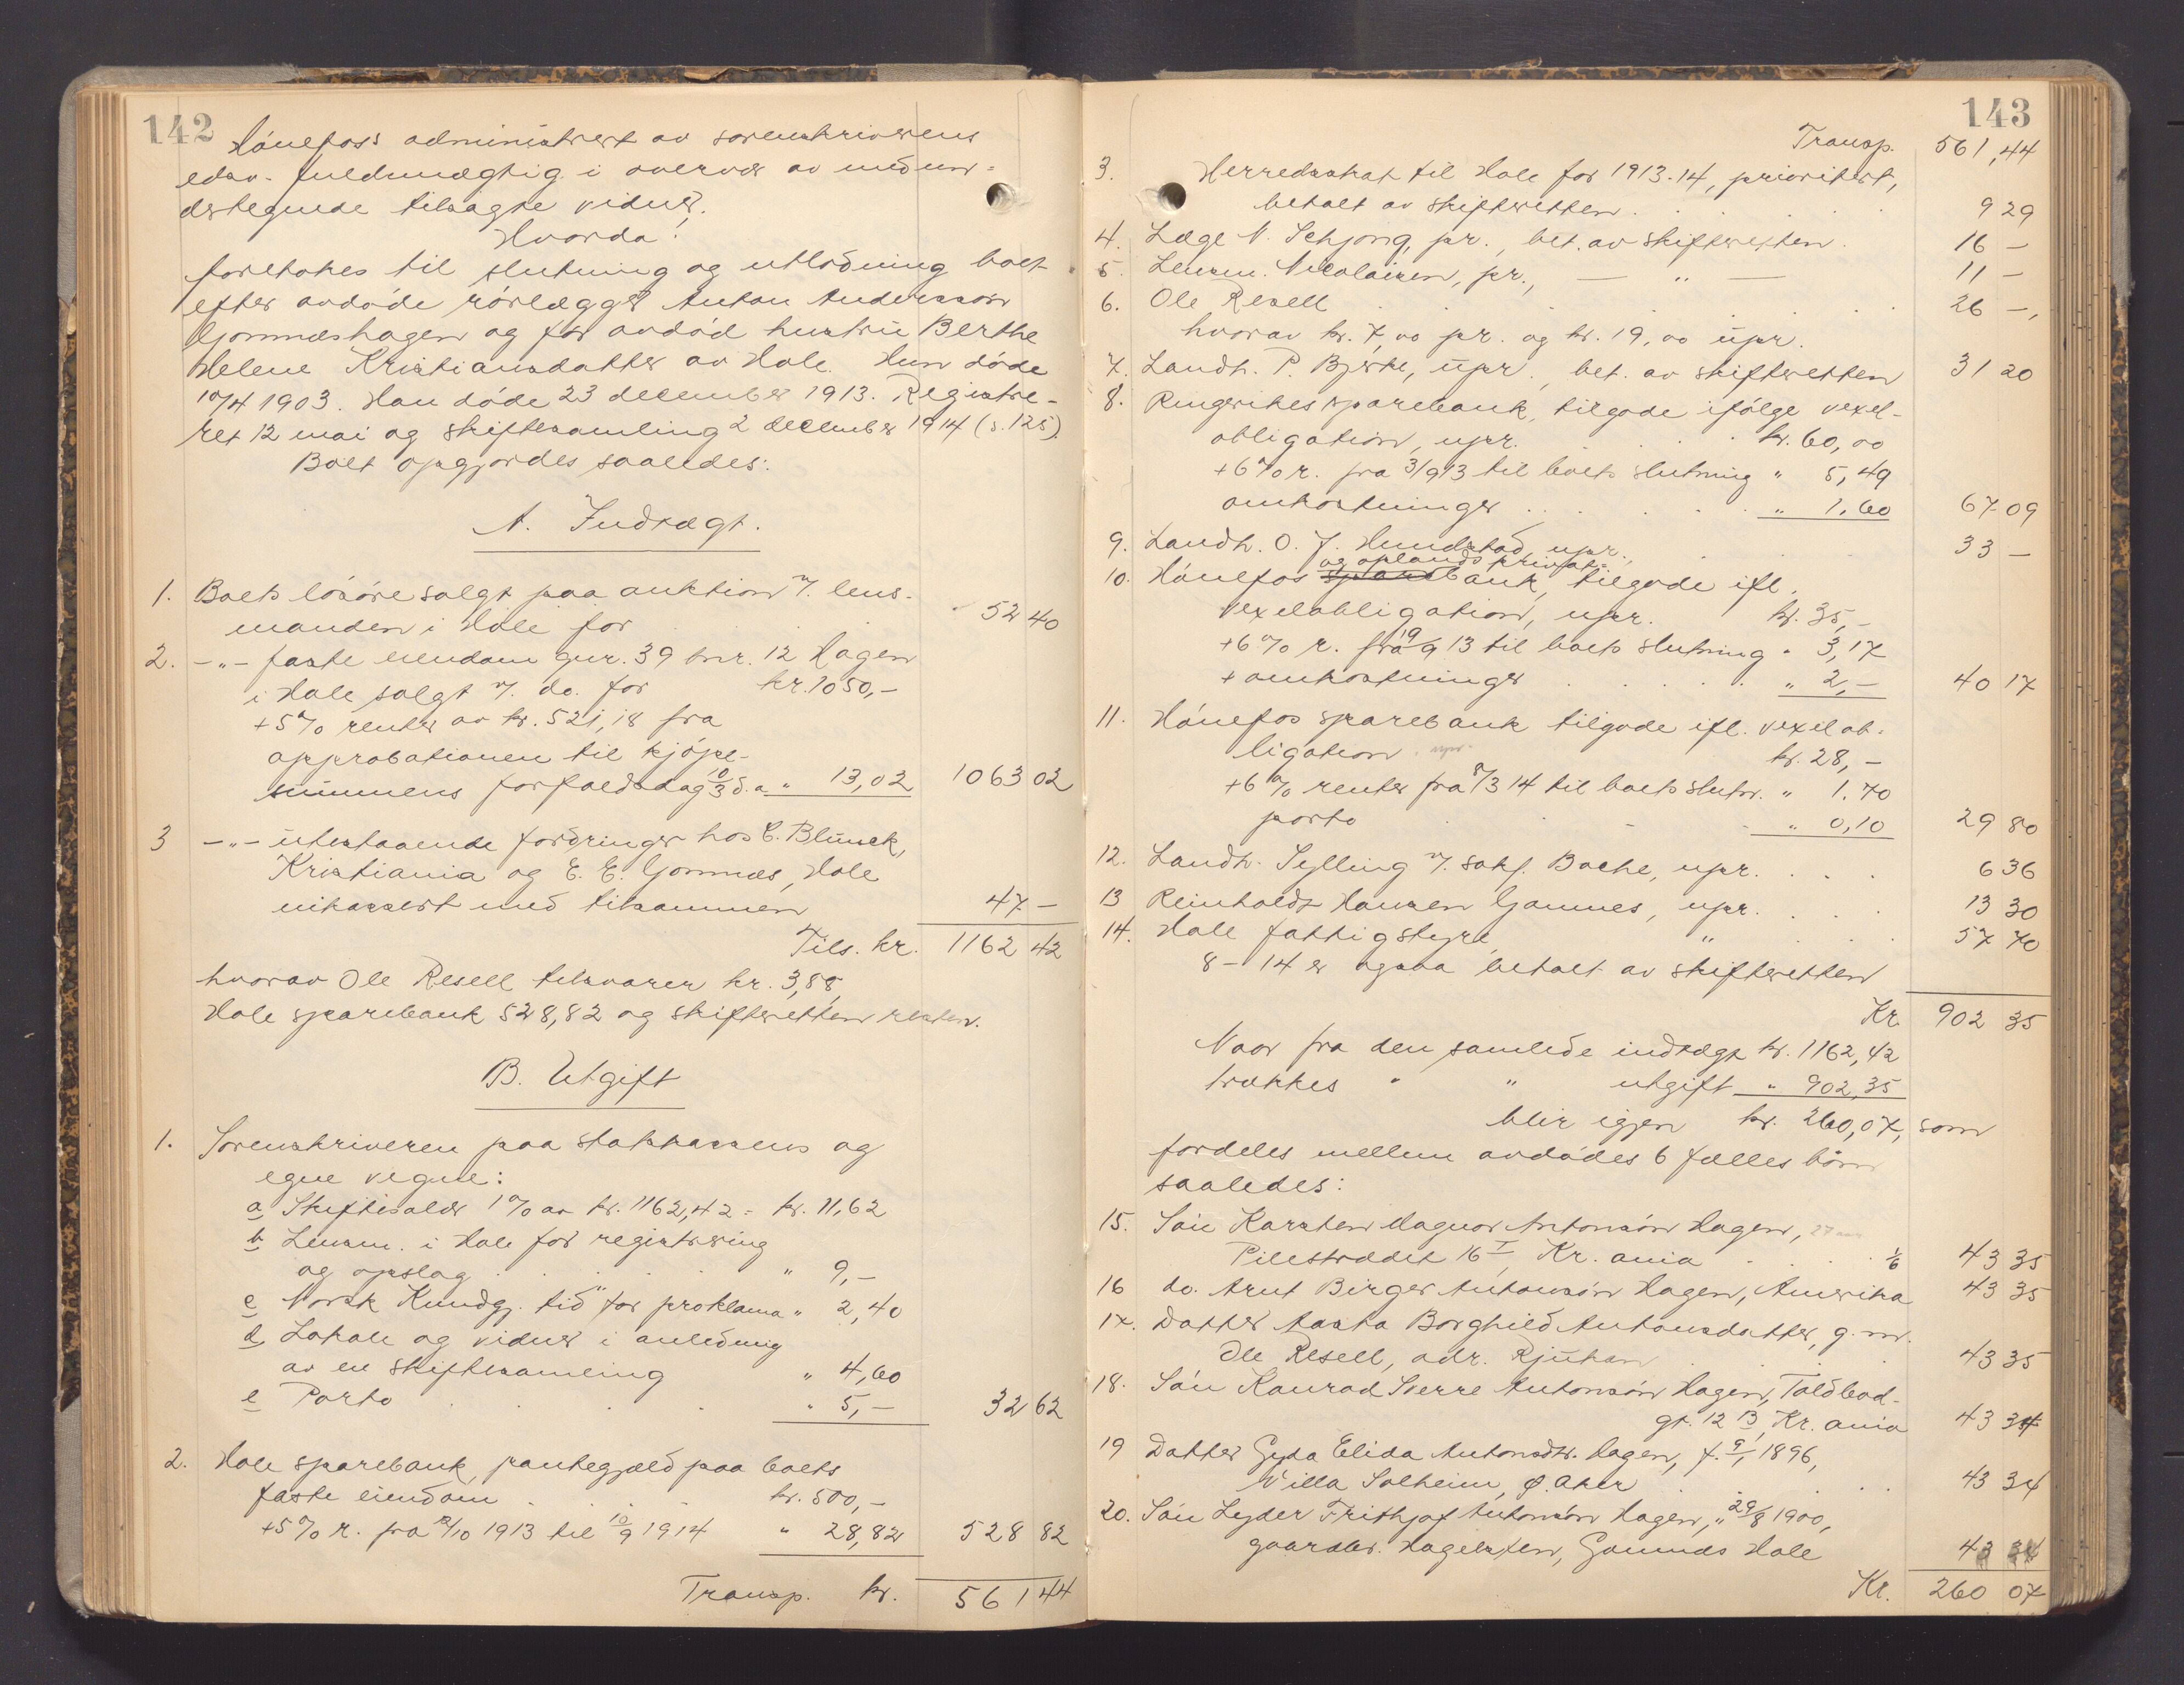 142
Hönefoss administrert av sorenskriverens
edsv. fuldmægtig i overvær av medun-
dertegnede tilsagte vidner.
Hvorda:
foretokes til slutning og utlodning boet
efter avdøde rørlægger Anton Anderssøn
Gomnæshagen og før avdød hustru Berthe
Helene Kristiansdatter av Hole. Hun døde
10/4 1903. Han døde 23 december 1913. Registre-
ret 12 mai og skiftesamling 2 december 1914 (s. 125).
Boet opgjordes saaledes:
A. Indtægt.
1. Boets løsøre solgt paa auktion v/. lens-
manden i Hole for . . . . 52 40
2. -"- faste eiendom gnr. 39 bnr. 12 Hagen
i Hole solgt v/. do. for kr. 1050,-
+5% renter av kr. 521,18 fra
approbationen til kjøpe-
summens forfaldsdag 10/3 d.a. " 13,02 1063 02
3 -"- utestaaende fordringer hos C. Blunck,
Kristiania og E. E. Gomnæs, Hole
inkassert med tilsammen 47 -
Tils. kr. 1162 42
hvorav Ole Resell tilsvarer kr. 3,88,
Hole sparebank 528,82 og skifteretten resten.
B. Utgift
1. Sorenskriveren paa statskassens og
egne vegne:
a, Skiftesalær 1% av kr. 1162,42 = kr. 11,62
b, Lensm. i Hole for registrering
og opslag . . . . " 9,-
c, "Norsk Kundgj. tid" for proklama " 2,40
d, Lokale og vidner i anledning
av en skiftesamling " 4,60
e Porto . . . " 5,- 32 62
2. Hole sparebank, pantegjæld paa boets
faste eiendom . . . kr. 500,-
+5% r. fra /10 1913 til 10/9 1914 " 28,82 528 82
Transp. kr. 561 44
143
Transp. 561,44
3. Herredsskat til Hole for 1913-14, prioritert,
betalt av skifteretten . . . . 9 29
4. Læge N. Schjong, pr., bet. av skifteretten. 16 -
5. Lensm. Nicolaisen, pr., - " - 11 -
6. Ole Resell . . . . . 26 -,
hvorav kr. 7,00 pr. og kr. 19,00 upr.
7. Landh. P. Bjerke, upr., bet. av skifteretten 31 20
8. Ringerikes sparebank, tilgode ifølge vexel-
obligation, upr. . . . kr. 60,00
+6% r. fra 3/9 13 til boets slutning " 5,49
omkostninger . . . . " 1,60 67 09
9. Landh. O. J. Hundstad, upr. . . 33 -
og oplands privat-
10. Hönefos sparebank, tilgode ifl.
vexelobligation, upr. kr. 35,-
+6% r. fra 19/9 13 til boets slutning " 3,17
+ omkostninger . . . . " 2,- 40 17
11. Hönefos sparebank tilgode ifl. vexelob-
ligation. upr. kr. 28,-
+6% renter fra /3 14 til boets slutn. " 1.70
porto . . . " 0,10 29 80
12. Landh. Sylling v/. sakf. Bache, upr. . . . 6 36
13 Reinholdt Hansen Gomnes, upr. . . . 13 30
14. Hole fattigstyre, " . . . 57 70
8 - 14 er ogsaa betalt av skifteretten
Kr. 902 35
Naar fra den samlede indtægt kr. 1162,42
trækkes " " utgift " 902,35
blir igjen kr. 260,07, som
fordeles mellem avdødes 6 fælles børn
saaledes:
15. Søn Karsten Magnor Antonsøn Hagen, 27 aar
Pilestrædet 16 I, Kr.ania . . . . 1/6 43 35
16 do. Arnt Birger Antonsøn Hagen, Amerika 43 35
17. Datter Aasta Borghild Antonsdatter, g. m.
Ole Resell, adr. Rjukan . . . 43 35
18. Søn Konrad Sverre Antonsøn Hagen, Toldbod-
gt. 12 B, Kr.ania 43 34
19 Datter Gyda Elida Antonsdtr. Hagen, f. 9/1 1896,
Villa Solheim, Ø. Aker . . . . 43 34
20. Søn Lyder Frithjof Antonsøn Hagen, " 29/8 1900,
gaardbr. Hagelsten, Gomnes Hole 43 34
Kr. 260 07